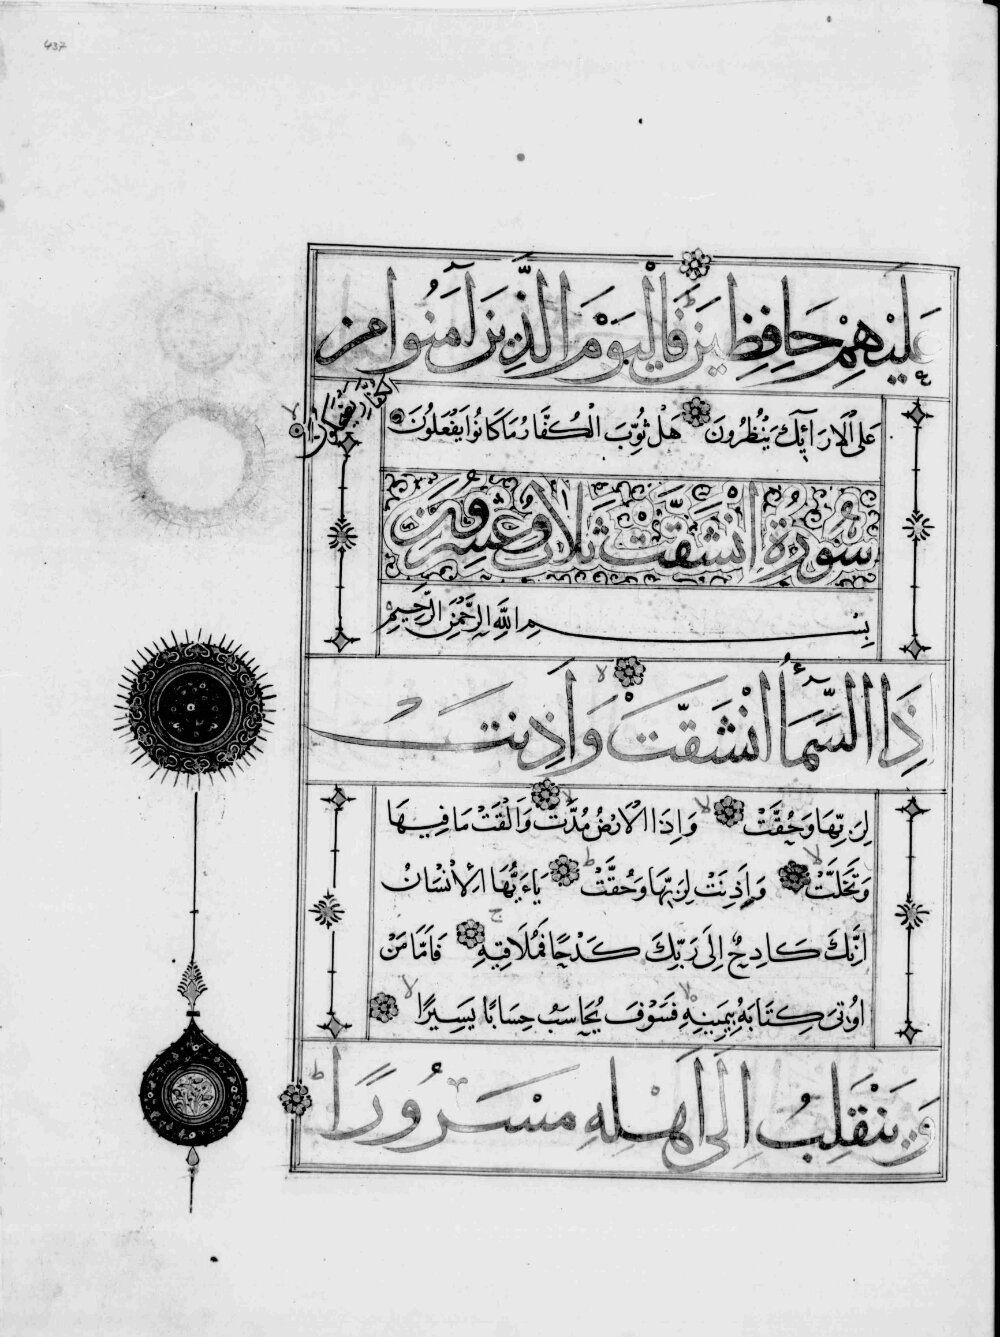 437
عَلَيْهِمْ حَافِظِينَ فَالْيَوْمَ الَّذِينَ آمَنُوا مِنَ
الْكُفَّارِ يَضْحَكُونَ
عَلَى الْاَرَآئِكِ يَنْظُرُونَ هَلْ ثُوِّبَ الْكُفَّارُ مَا كَانُوا يَفْعَلُونَ
سُورَةُ انْشَقَّتْ ثَلاث وعشرون
بِسْمِ اللَّهِ الرَّحْمَنِ الرَّحِيمِ
ذَا السَّمَاءُ انْشَقَّتْ وَاَذِنَتْ
لِرَبِّهَا وَحُقَّتْ وَاِذَا الْاَرْضُ مُدَّتْ وَاَلْقَتْ مَا فِيهَا
وَتَخَلَّتْ وَاَذِنَتْ لِرَبِّهَا وَحُقَّتْ يَاءَيُّهَا الْأِنْسَانُ
اِنَّكَ كَادِحٌ اِلَى رَبِّكَ كَدْحًا فَمُلَاقِيهِ فَاَمَّا مَنْ
اُوتِىَ كِتَابَهُ بِيَمِينِهِ فَسَوْفَ يُحَاسَبُ حِسَابًا يَسِيرًا
وَيَنْقَلِبُ اِلَى اَهْلِهِ مَسْرُورًا